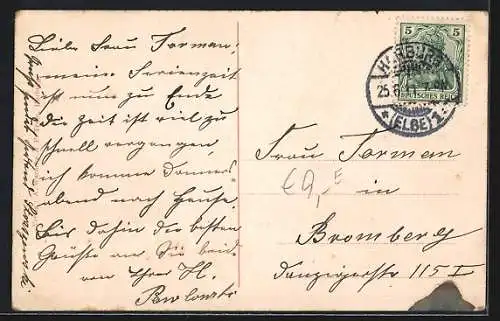 Liebe Frau Forman!
meine Ferienzeit
ist nun zu Ende
die Zeit ist viel zu
schnell vergangen,
ich komme Donners-
abend nach Hause,
bis dahin die besten
Grüße an Sie beide
von Ihrer H.
Pawlowski
5 5
DEUTSCHES REICH
HARBURG
25.8.11
*(ELBE)1*
Frau Forman
€9,-
in
Bromberg
Danzigerstr 115 I